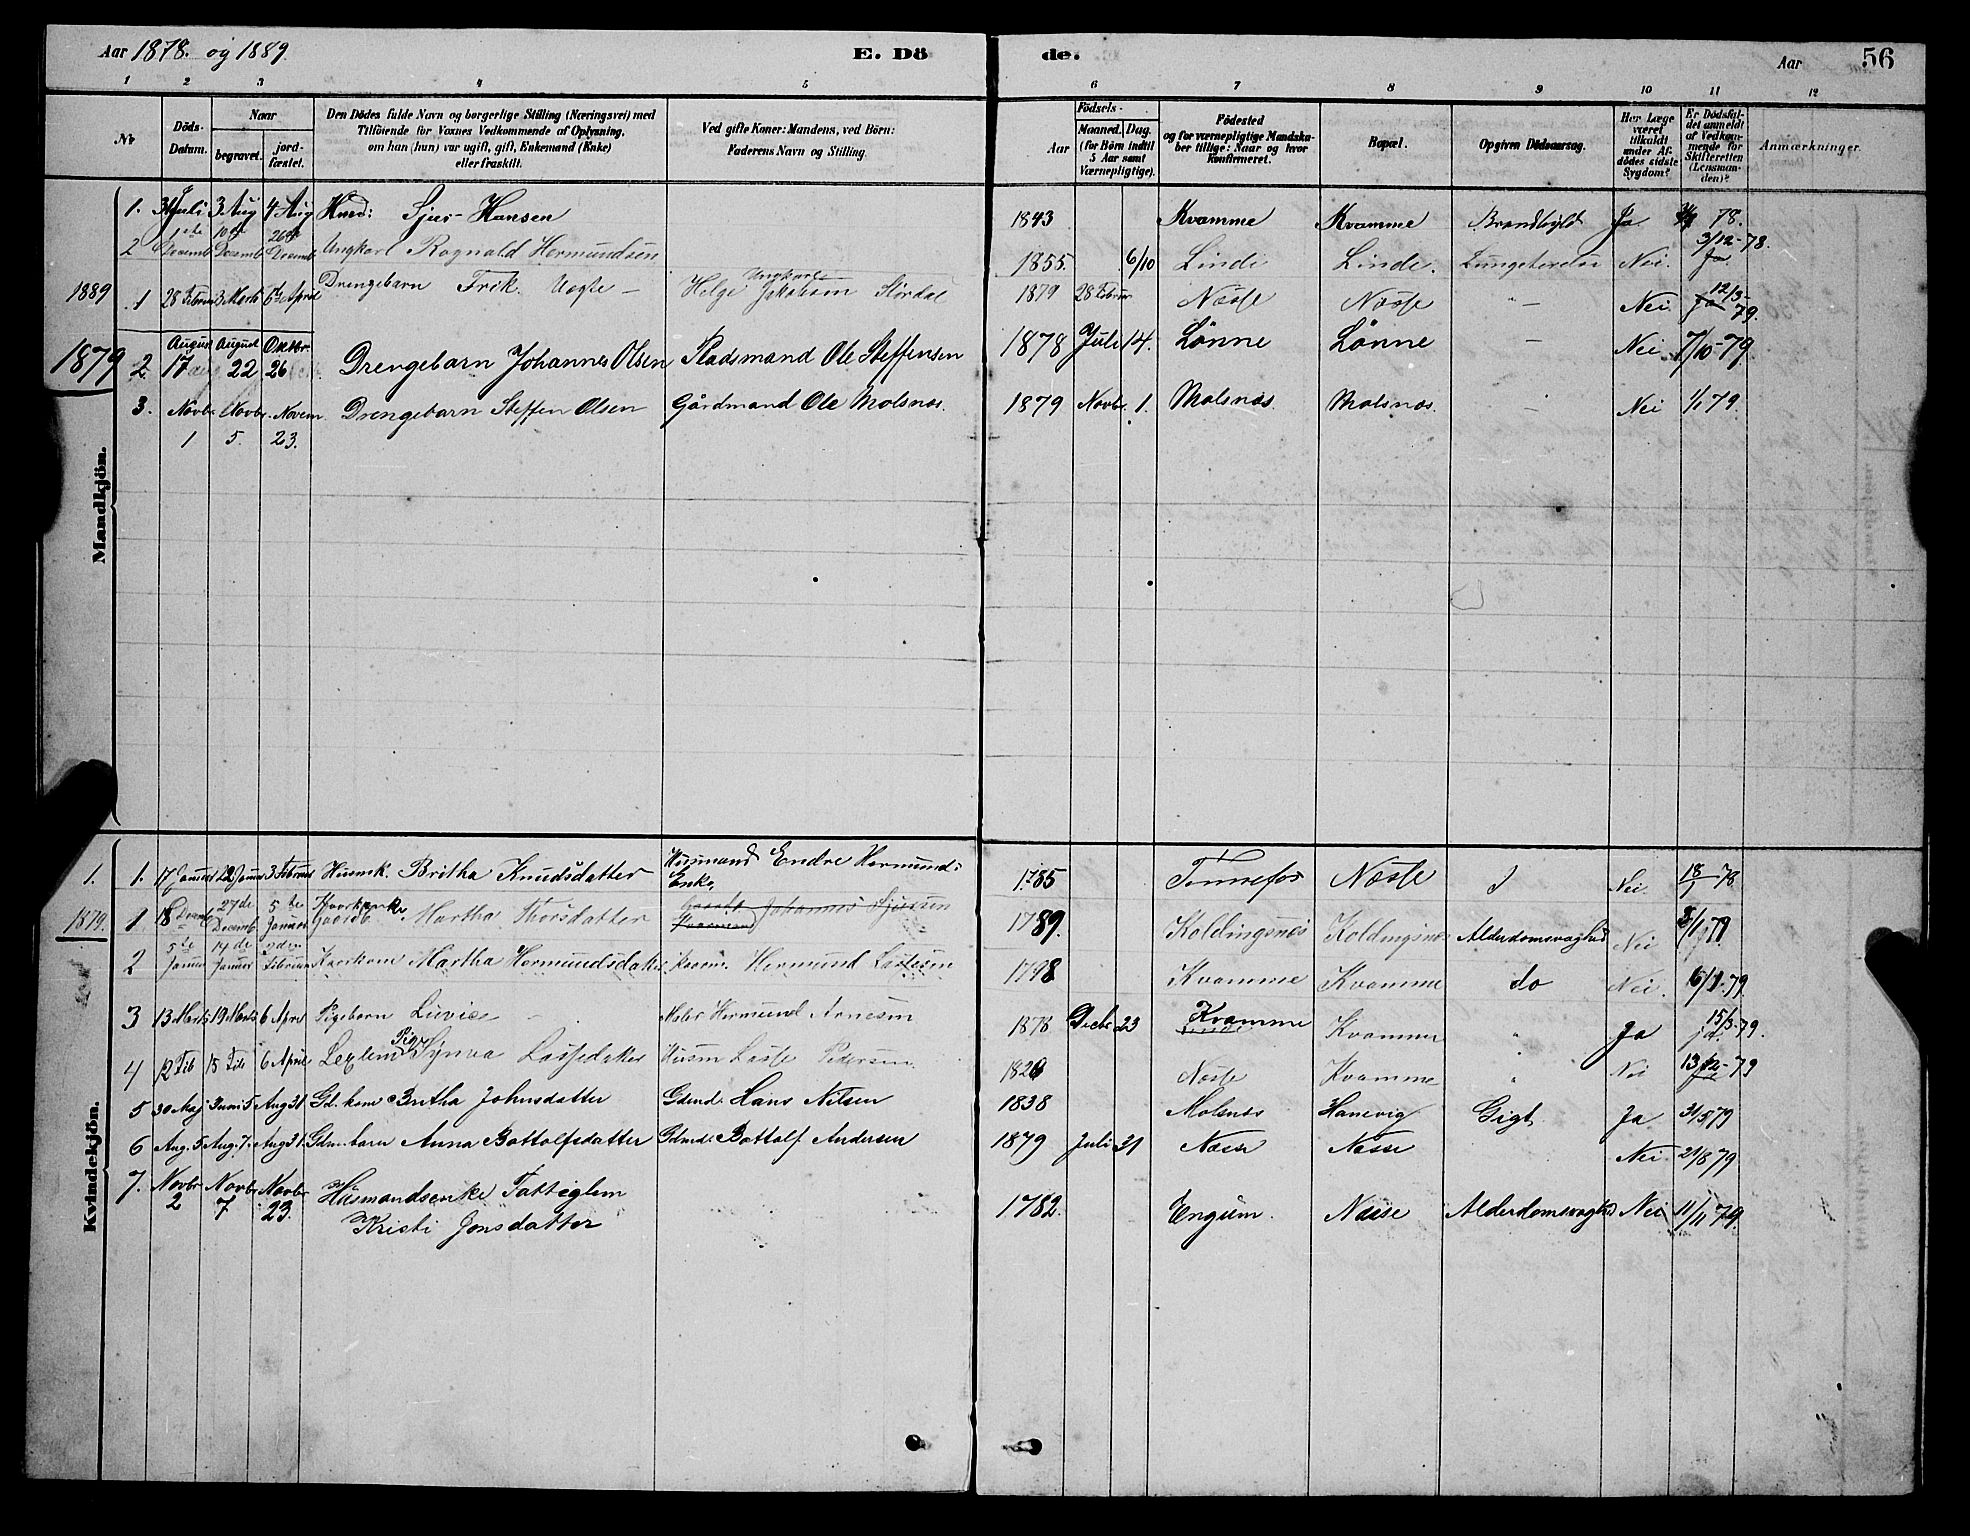 Aar 1878. og 1889.
E. Dö
de.
Aar
56
1 2 3 4 5 6 7 8 9 10 11 12
No
Döds-
Datum.
Naar
begravet.
jord-
fæstet.
Den Dödes fulde Navn og borgerlige Stilling (Næringsvei) med
Tilföiende for Voxnes Vedkommende af Oplysning,
om han (hun) var ugift, gift, Enkemand (Enke)
eller fraskilt.
Ved gifte Koner: Mandens, ved Börn:
Faderens Navn og Stilling.
Aar
Födsels-
Maaned. Dag.
(for Börn indtil
5 Aar samt
Værnepligtige).
Födested
og for værnepligtige Mandska-
ber tillige: Naar og hvor
Konfirmeret.
Bopæl.
Opgiven Dödsaarsag.
Har Læge
været
tilkaldt
under Af-
dödes sidste
Sygdom?
Er Dödsfal-
det anmeldt
af Vedkom-
mende for
Skifteretten
(Lensman-
den)?
Anmærkninger.
Mandkjön.
1. 31 Juli 3 Aug 4 Aug Sjur Hansen 1843 Kvamme Kvamme Ja 78.
2 1ste Decemb 10de Decemb 26de Decemb Ungkarl Rognald Hermundsen 1855. 6/10 Linde Linde. Nei. Ja 3/12-78.
1889 1 28 Februar 3 Marts 6te April Drengebarn — Ungkarl Helge Jakobsen 1879 28 Februar Næsse Næsse — Nei Ja 12/3-79.
1879 2 August 17 August 22 Oktbr. 26 Drengebarn Johannes Olsen Pladsmand Ole Steffensen 1878 Juli 14. Lønne Lønne — Nei 7/10-79.
3. Novbr 1 Novbr. 5. Novem 23. Drengebarn Steffen Olsen Gårdmand Ole Molsnæs. 1879 Novbr. 1. Molsnæs Molsnæs. — Nei 1/1 79.
Kvindekjön.
1. 1. 17 Januar 22 Januar 3 Februar Husmk. Britha Knudsdatter Husmand Endre Hermunds: Enke 1785 Næsse Nei. 18/1 78
1879. 1 18 Decemb 27de Decemb 5te Januar Martha Thorsdatter Johannes Sjursen 1789. Koldingsnæs Koldingsnæs Alderdomsvaghed Nei 8/1 79
2 5te Januar 14de Januar Februar Martha Hermundsdatter Hermund Lassesen 1798 Kvamme Kvamme do Nei. 6/1-79.
3 13 Marts 19 Marts 6 April Pigebarn — Hermund Arnesen 1878 Decbr 23 Kvamme Kvamme " Ja 15/3-79.
4 12 Feb 15 Feb 6 April Pige Synva Lassedatter Husm Lasse Pedersen. Næsse Kvamme " Nei 13/2-79
5 30 Maj Juni 5 Aug 31 Gd. kone Britha Johnsdatter Gdmd. Hans Nilsen 1838 Molsnes Hanevig Gigt Ja 31/5 79
6 Aug. 5 Aug. 7. Aug 31. Gdm. barn Anna Bottolfsdatter Gdmd. Bottolf Andersen 1879 Juli 31 Næsse Næsse Nei 21/8 79
7. Novbr 2 Novbr 7 Novbr 23. Husmandsenke Fattiglem 1782. Engum. Næsse Alderdomsvaghed Nei 11/11 79
Kristi Jonsdatter